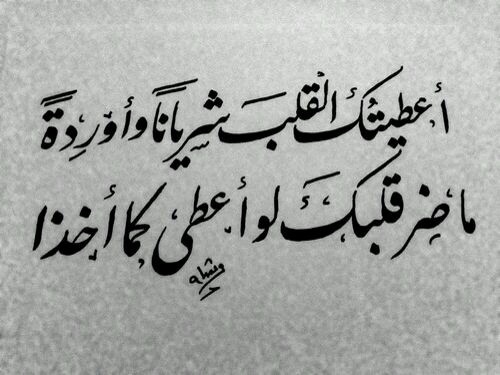 أعطيتُك القلبَ شرياناً وأوْرِدةً
ما ضر قلبكَ لو أعطى كما أخذا